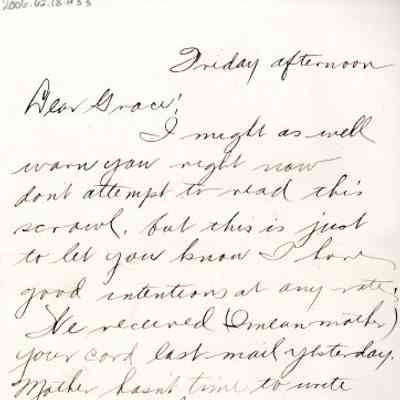 2006.02.18.433
Friday afternoon
Dear Grace!
I might as well
warn you right now
dont attempt to read this
scrawl, but this is just
to let you know I have
good intentions at any rate.
We received (I mean mother)
your card last mail yesterday.
Mother hasn't time to write